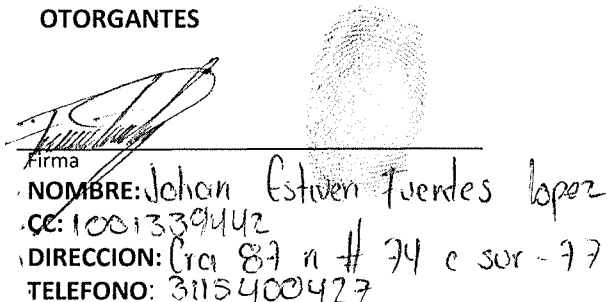 OTORGANTES
Firma
NOMBRE: Johan Estiven Fuentes lopez
CC: 1001339442
DIRECCION: Cra 87 n # 74 c sur - 77
TELEFONO: 3115400427